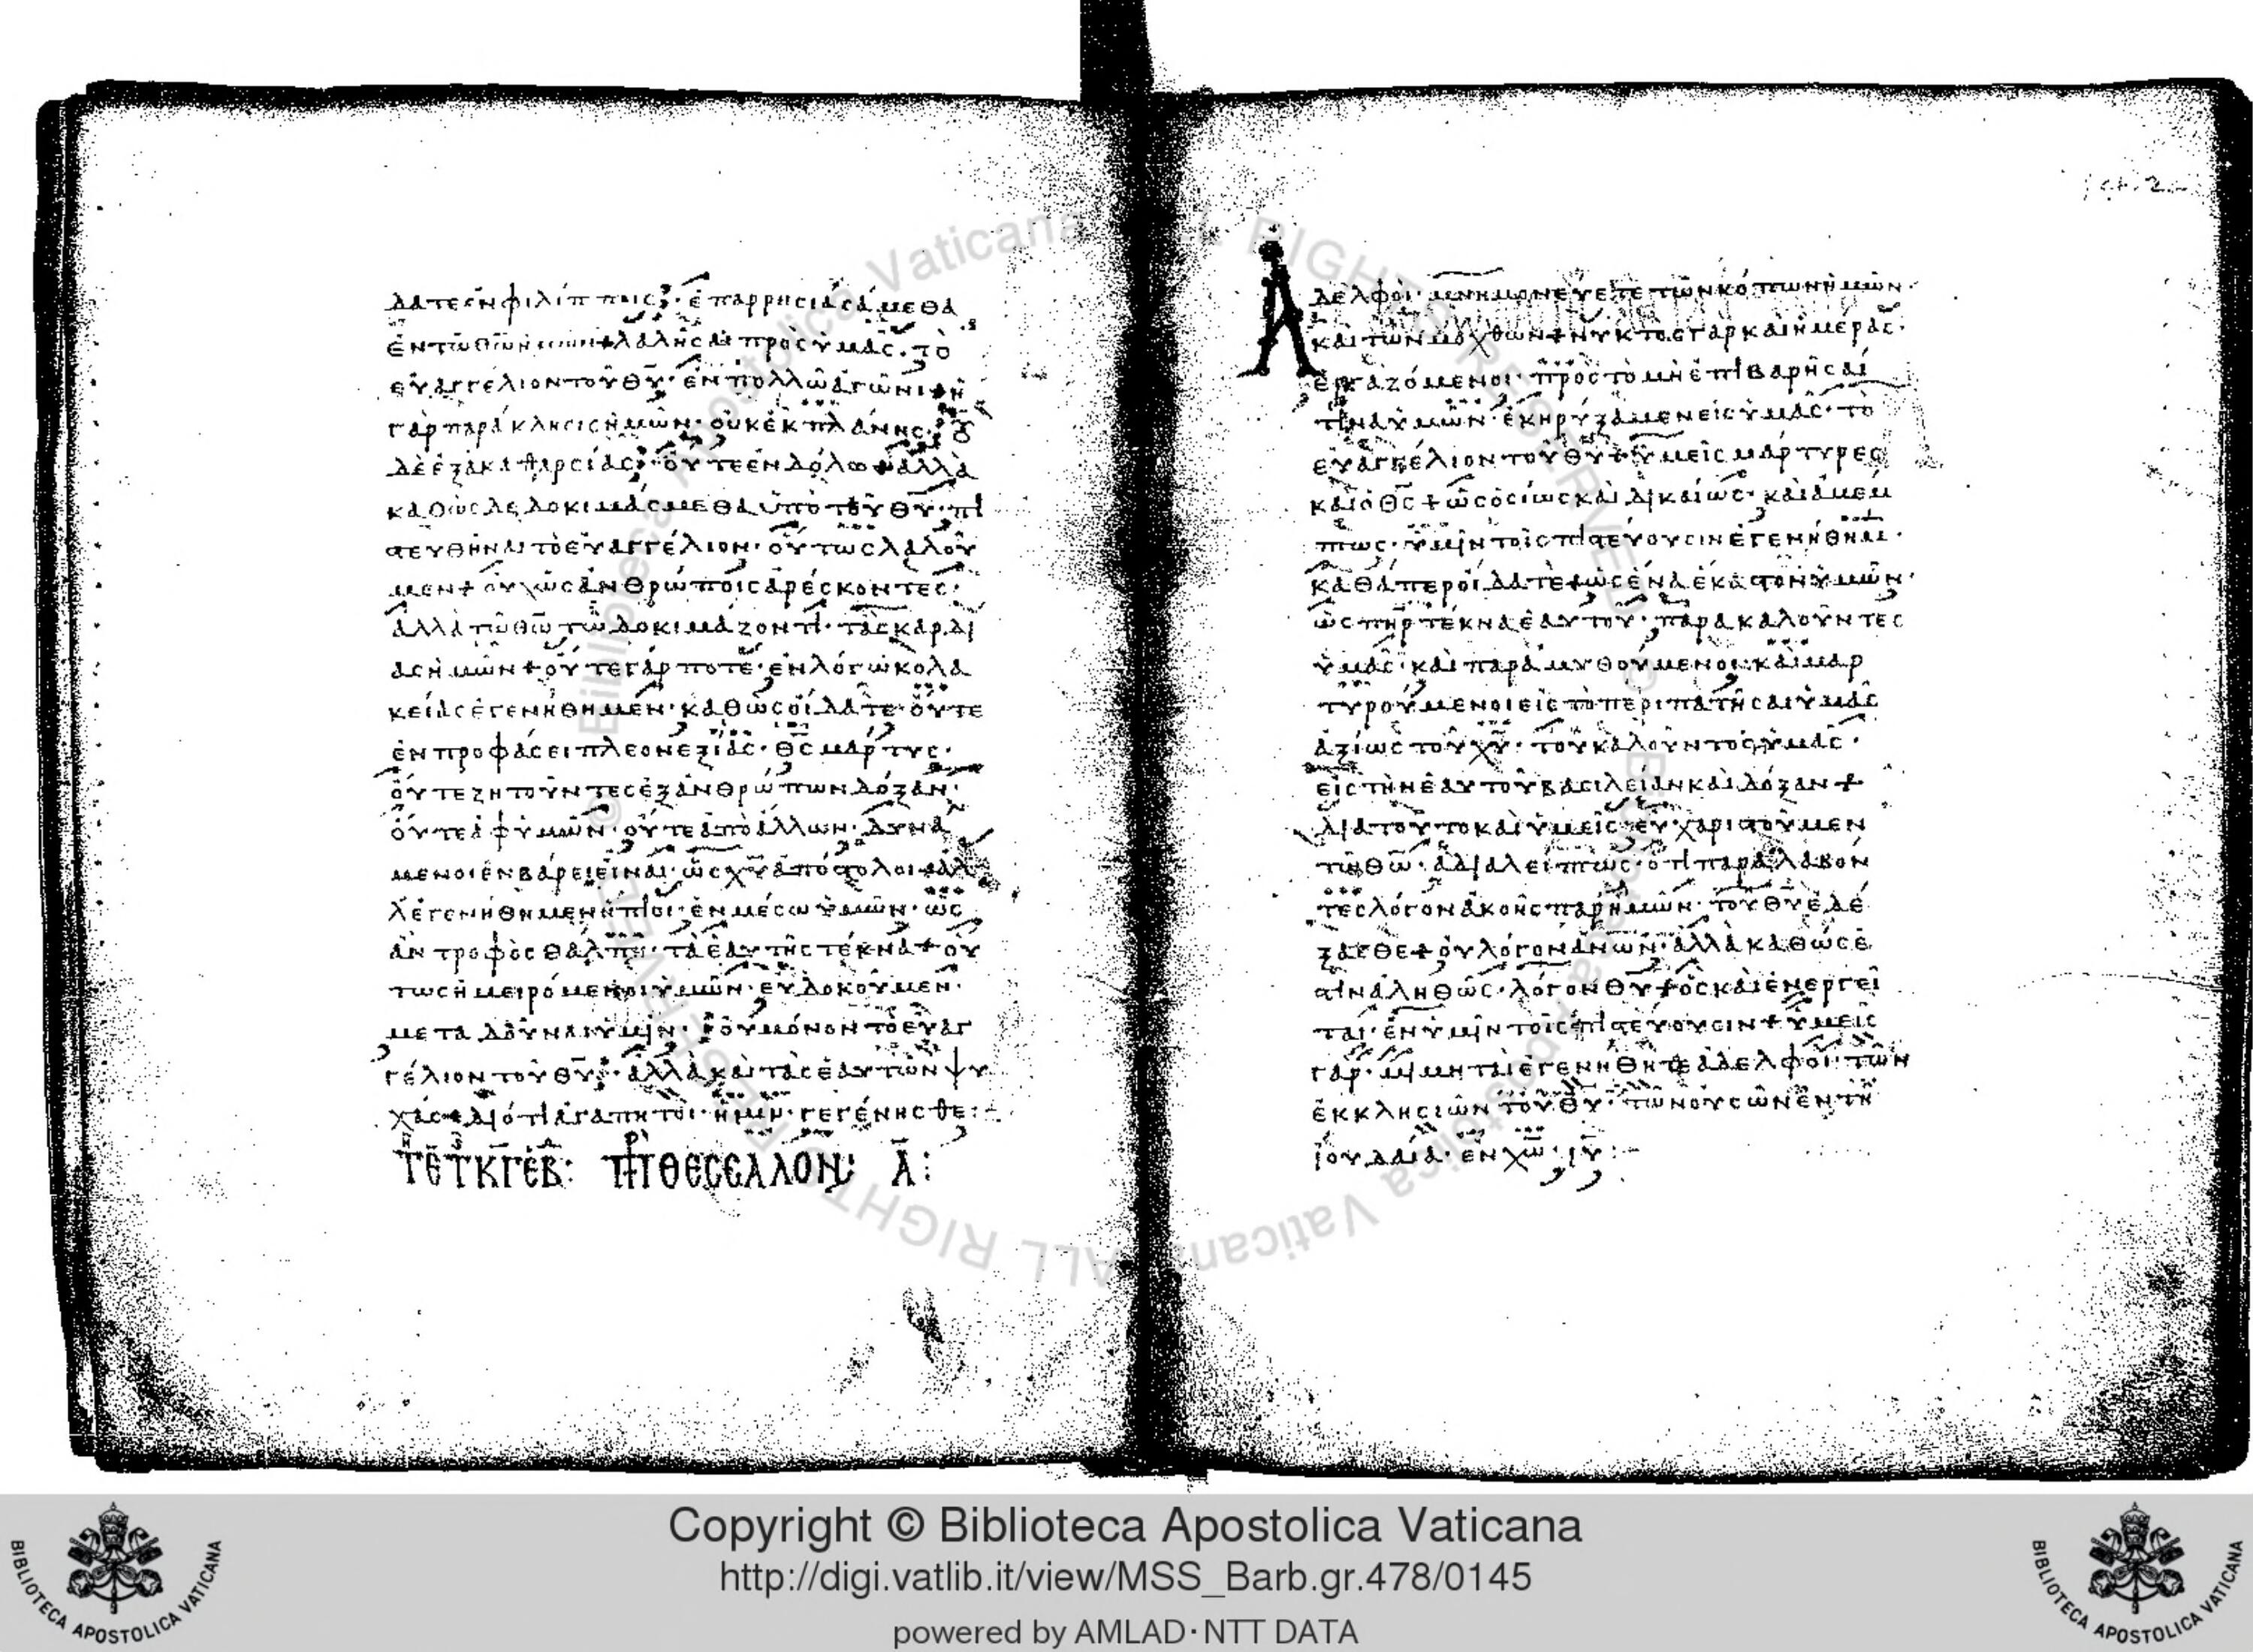 δατε ἐν φιλίπποις· ἐπαρρησιασάμεθα
ἐν τῶ θῶ ἡμῶν + λαλῆσαι πρὸς ὑμᾶς· τὸ
εὐαγγέλιον τοῦ θυ· ἐν πολλῶ ἀγῶνι + ἡ
γὰρ παράκλησις ἡμῶν· οὐκ ἐκ πλάνης· οὐ
δὲ ἐξ ἀκαθαρσίας· οὔτε ἐν δόλω + ἀλλὰ
καθὼς δεδοκιμάσμεθα ὑπὸ τοῦ θυ· πι
στευθῆναι τὸ εὐαγγέλιον· οὕτως λαλοῦ
μεν + οὐχ ὡς ἀνθρώποις ἀρέσκοντες·
ἀλλὰ τῶ θῶ τῶ δοκιμάζοντι· τὰς καρδί
ας ἡμῶν + οὔτε γάρ ποτε· ἐν λόγω κολα
κείας ἐγενήθημεν· καθὼς οἴδατε· οὔτε
ἐν προφάσει πλεονεξίας· θς μάρτυς·
οὔτε ζητοῦντες ἐξ ἀνθρώπων δόξαν·
οὔτε ἀφ' ὑμῶν· οὔτε ἀπὸ ἄλλων· δυνά
μενοι ἐν βάρει εἶναι· ὡς χυ ἀπόστολοι + ἀλ
λ' ἐγενήθημεν ἤπιοι· ἐν μέσω ὑμῶν· ὡς
ἂν τροφὸς θάλπη· τὰ ἑαυτῆς τέκνα + οὕ
τως ἡμειρόμενοι ὑμῶν· εὐδοκοῦμεν·
μεταδοῦναι ὑμῖν· οὐ μόνον τὸ εὐαγ
γέλιον τοῦ θυ· ἀλλὰ καὶ τὰς ἑαυτῶν ψυ
χάς + διότι ἀγαπητοὶ· ἡμῖν· γεγένησθε:-
ΘΕΣΣΑΛΟΝ: Α:
Ἀδελφοὶ· μνημονεύετε τῶν κόπων ἡμῶν·
καὶ τῶν μόχθων + νυκτὸς γὰρ καὶ ἡμερας·
ἐργαζόμενοι· πρὸς τὸ μὴ ἐπιβαρῆσαί
τινα ὑμῶν· ἐκηρύξαμεν εἰς ὑμᾶς· τὸ
εὐαγγέλιον τοῦ θυ + ὑμεῖς μάρτυρες
καὶ ὁ θς + ὡς ὁσίως καὶ δικαίως· καὶ ἀμέμ
πτως· ὑμῖν τοῖς πιστεύουσιν ἐγενήθημεν·
καθάπερ οἴδατε + ὡς ἕνα ἕκαστον ὑμῶν·
ὡς πηρ τέκνα ἑαυτοῦ· παρακαλοῦντες
ὑμᾶς· καὶ παραμυθούμενοι· καὶ μαρ
τυρούμενοι εἰς τὸ περιπατῆσαι ὑμᾶς
ἀξίως τοῦ χυ· τοῦ καλοῦντος ὑμᾶς·
εἰς τὴν ἑαυτοῦ βασιλείαν καὶ δόξαν +
διὰ τοῦτο καὶ ὑμεῖς· εὐχαριστοῦμεν
τῶ θῶ· ἀδιαλείπτως· ὅτι παραλαβόν
τες λόγον ἀκοῆς παρ' ἡμῶν· τοῦ θυ ἐδέ
ξασθε + οὐ λόγον ἀνων· ἀλλὰ καθώς ἐ
στιν ἀληθῶς· λόγον θυ + ὃς καὶ ἐνεργεῖ
ται· ἐν ὑμῖν τοῖς πιστεύουσιν + ὑμεῖς
γὰρ· μιμηταὶ ἐγενήθητε ἀδελφοὶ· τῶν
ἐκκλησιῶν τοῦ θυ· τῶν οὐσῶν ἐν τῆ
ἰουδαία· ἐν χω· ιυ:-
Copyright © Biblioteca Apostolica Vaticana
http://digi.vatlib.it/view/MSS_Barb.gr.478/0145
powered by AMLAD·NTT DATA
BIBLIOTECA APOSTOLICA VATICANA
BIBLIOTECA APOSTOLICA VATICANA